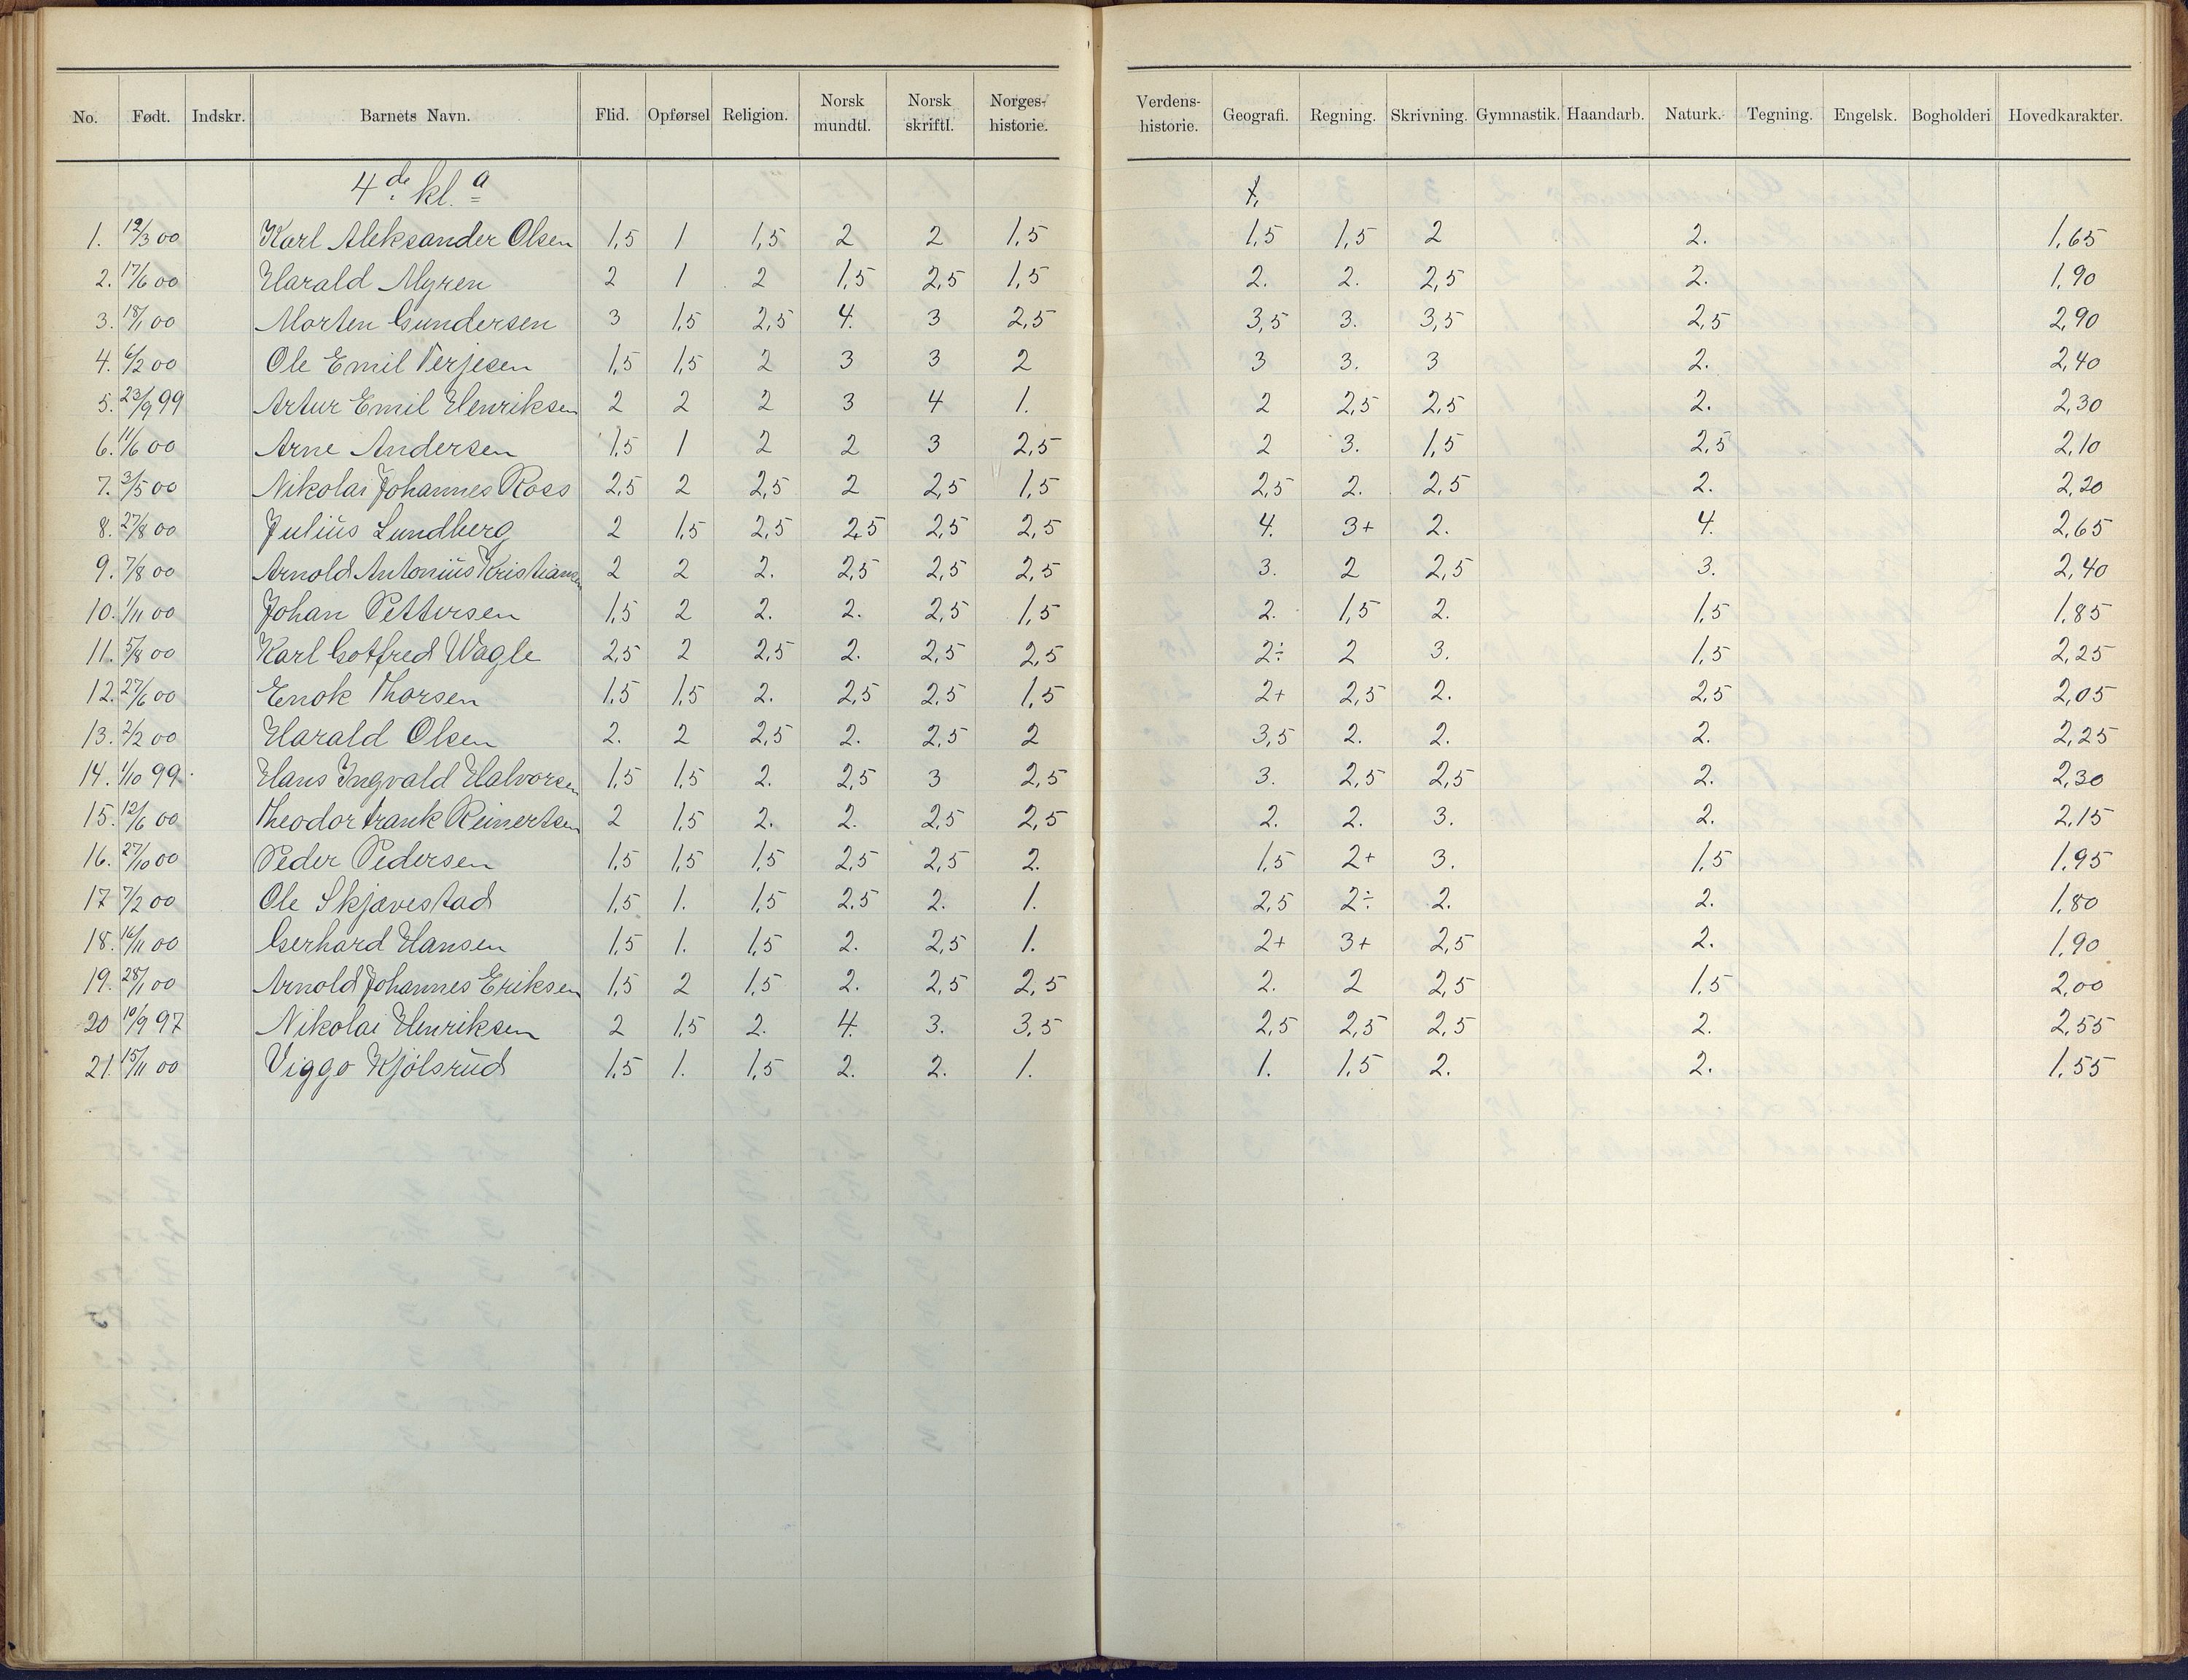 No. Født. Indskr. Barnets Navn. Flid. Opførsel Religion. Norsk mundtl. Norsk skriftl. Norges-historie. Verdens-historie. Geografi. Regning. Skrivning. Gymnastik. Haandarb. Naturk. Tegning. Engelsk. Bogholderi Hovedkarakter.
4de kl. a
1. 12/3 00 Karl Aleksander Olsen 1,5 1 1,5 2 2 1,5 1,5 1,5 2 2. 1,65
2. 17/6 00 Harald Myren 2 1 2 1,5 2,5 1,5 2. 2. 2,5 2. 1,90
3. 18/1 00 Morten Gundersen 3 1,5 2,5 4. 3 2,5 3,5 3. 3,5 2,5 2,90
4. 6/2 00 Ole Emil Terjesen 1,5 1,5 2 3 3 2 3 3. 3 2. 2,40
5. 23/9 99 Artur Emil Henriksen 2 2 2 3 4 1. 2 2,5 2,5 2. 2,30
6. 11/6 00 Arne Andersen 1,5 1 2 2 3 2,5 2 3. 1,5 2,5 2,10
7. 3/5 00 Nikolai Johannes Ross 2,5 2 2,5 2 2,5 1,5 2,5 2. 2,5 2. 2,20
8. 27/8 00 Julius Lundberg 2 1,5 2,5 2,5 2,5 2,5 4. 3+ 2. 4. 2,65
9. 7/8 00 Arnold Antonius Kristiansen 2 2 2. 2,5 2,5 2,5 3. 2 2,5 3. 2,40
10. 1/11 00 Johan Pettersen 1,5 2 2. 2. 2,5 1,5 2. 1,5 2. 1,5 1,85
11. 5/8 00 Karl Gotfred Wagle 2,5 2 2,5 2. 2,5 2,5 2÷ 2 3. 1,5 2,25
12. 27/6 00 Enok Thorsen 1,5 1,5 2. 2,5 2,5 1,5 2+ 2,5 2. 2,5 2,05
13. 2/2 00 Harald Olsen 2. 2 2,5 2. 2,5 2 3,5 2. 2. 2. 2,25
14. 1/10 99 Hans Ingvald Halvorsen 1,5 1,5 2. 2,5 3 2,5 3. 2,5 2,5 2. 2,30
15. 12/6 00 Theodor Frank Reinertsen 2 1,5 2. 2. 2,5 2,5 2. 2. 3. 2. 2,15
16. 27/10 00 Peder Pedersen 1,5 1,5 1,5 2,5 2,5 2. 1,5 2+ 3. 1,5 1,95
17 7/2 00 Ole Skjævestad 1,5 1. 1,5 2,5 2. 1. 2,5 2÷ 2. 2. 1,80
18. 16/11 00 Gerhard Hansen 1,5 1. 1,5 2. 2,5 1. 2+ 3+ 2,5 2. 1,90
19. 28/1 00 Arnold Johannes Eriksen 1,5 2 1,5 2. 2,5 2,5 2. 2 2,5 1,5 2,00
20 10/9 97 Nikolai Henriksen 2 1,5 2. 4. 3. 3,5 2,5 2,5 2,5 2. 2,55
21. 15/11 00 Viggo Kjølsrud 1,5 1. 1,5 2. 2. 1. 1. 1,5 2. 2. 1,55